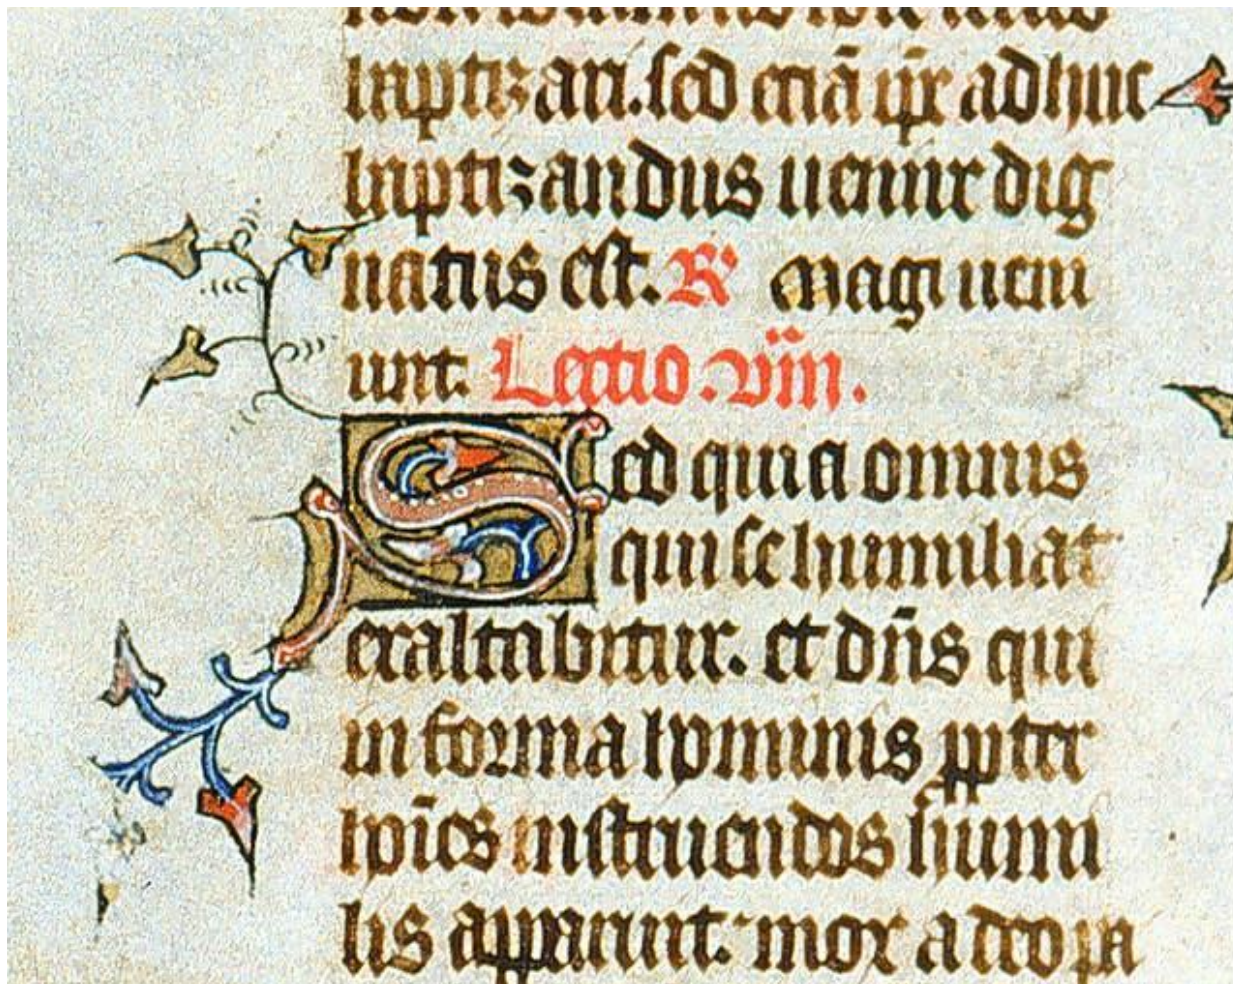 baptizari. sed etiā ip̄e adhuc
baptizandus uenire dig
natus est. R̷ Magi ueni
unt. Lectio .viii.
Sed quia omnis
qui se humiliat
exaltabitur. et dn̄s qui
in forma hominis ꝓpter
hoīes instruendos humi
lis apparuit. mox a deo pa